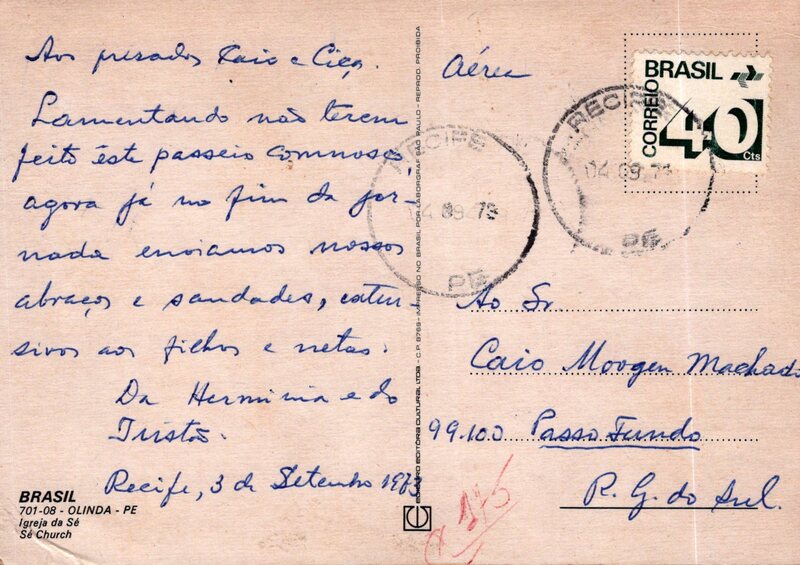 Aos prezados Caio e Ciça.
Lamentando não terem
feito êste passeio comnosco,
agora já no fim da jor-
nada enviamos nossos
abraços e saudades, exten-
sivos aos filhos e netos.
Da Herminia e do
Tristão.
Recife, 3 de Setembro 1973
BRASIL
701-08 - OLINDA - PE
Igreja da Sé
Sé Church
EDITÔRA CULTURAL LTDA - C.P. 8769 - IMPRESSO NO BRASIL POR LABORGRAF SÃO PAULO - REPROD. PROIBIDA
Aérea
BRASIL
CORREIO
40
Cts
RECIFE
04 09 73
PE
RECIFE
04 09 73
PE
Ao Sr
Caio Moogen Machado
99.100 Passo Fundo
R. G. do Sul.